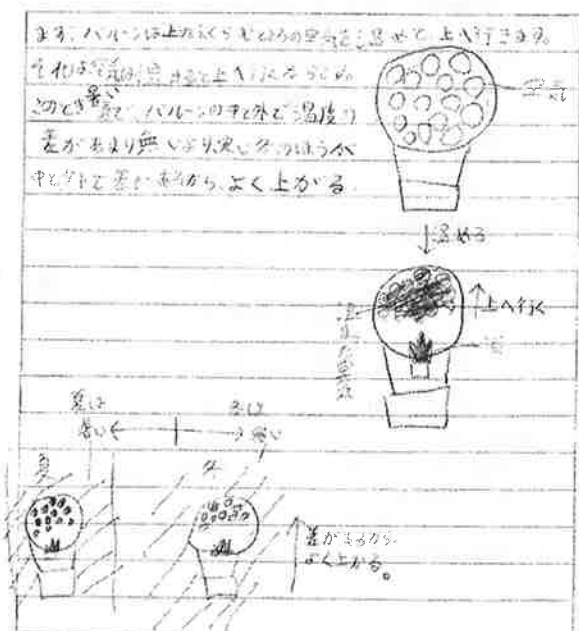 まず、バルーンは上だえくらむとうの空気を温めて、上へ行きます。
それは空気は温まると上へ行くからです。
このとき暑い夏で、バルーンの中と外で温度の
差があまり無いより、寒い冬のほうが
中と外で差があるから、よく上がる。
空気
↓温める
↑上へ行く
温まった空気
火
夏は
暑い
冬は
寒い
夏
冬
差があるから
よく上がる。